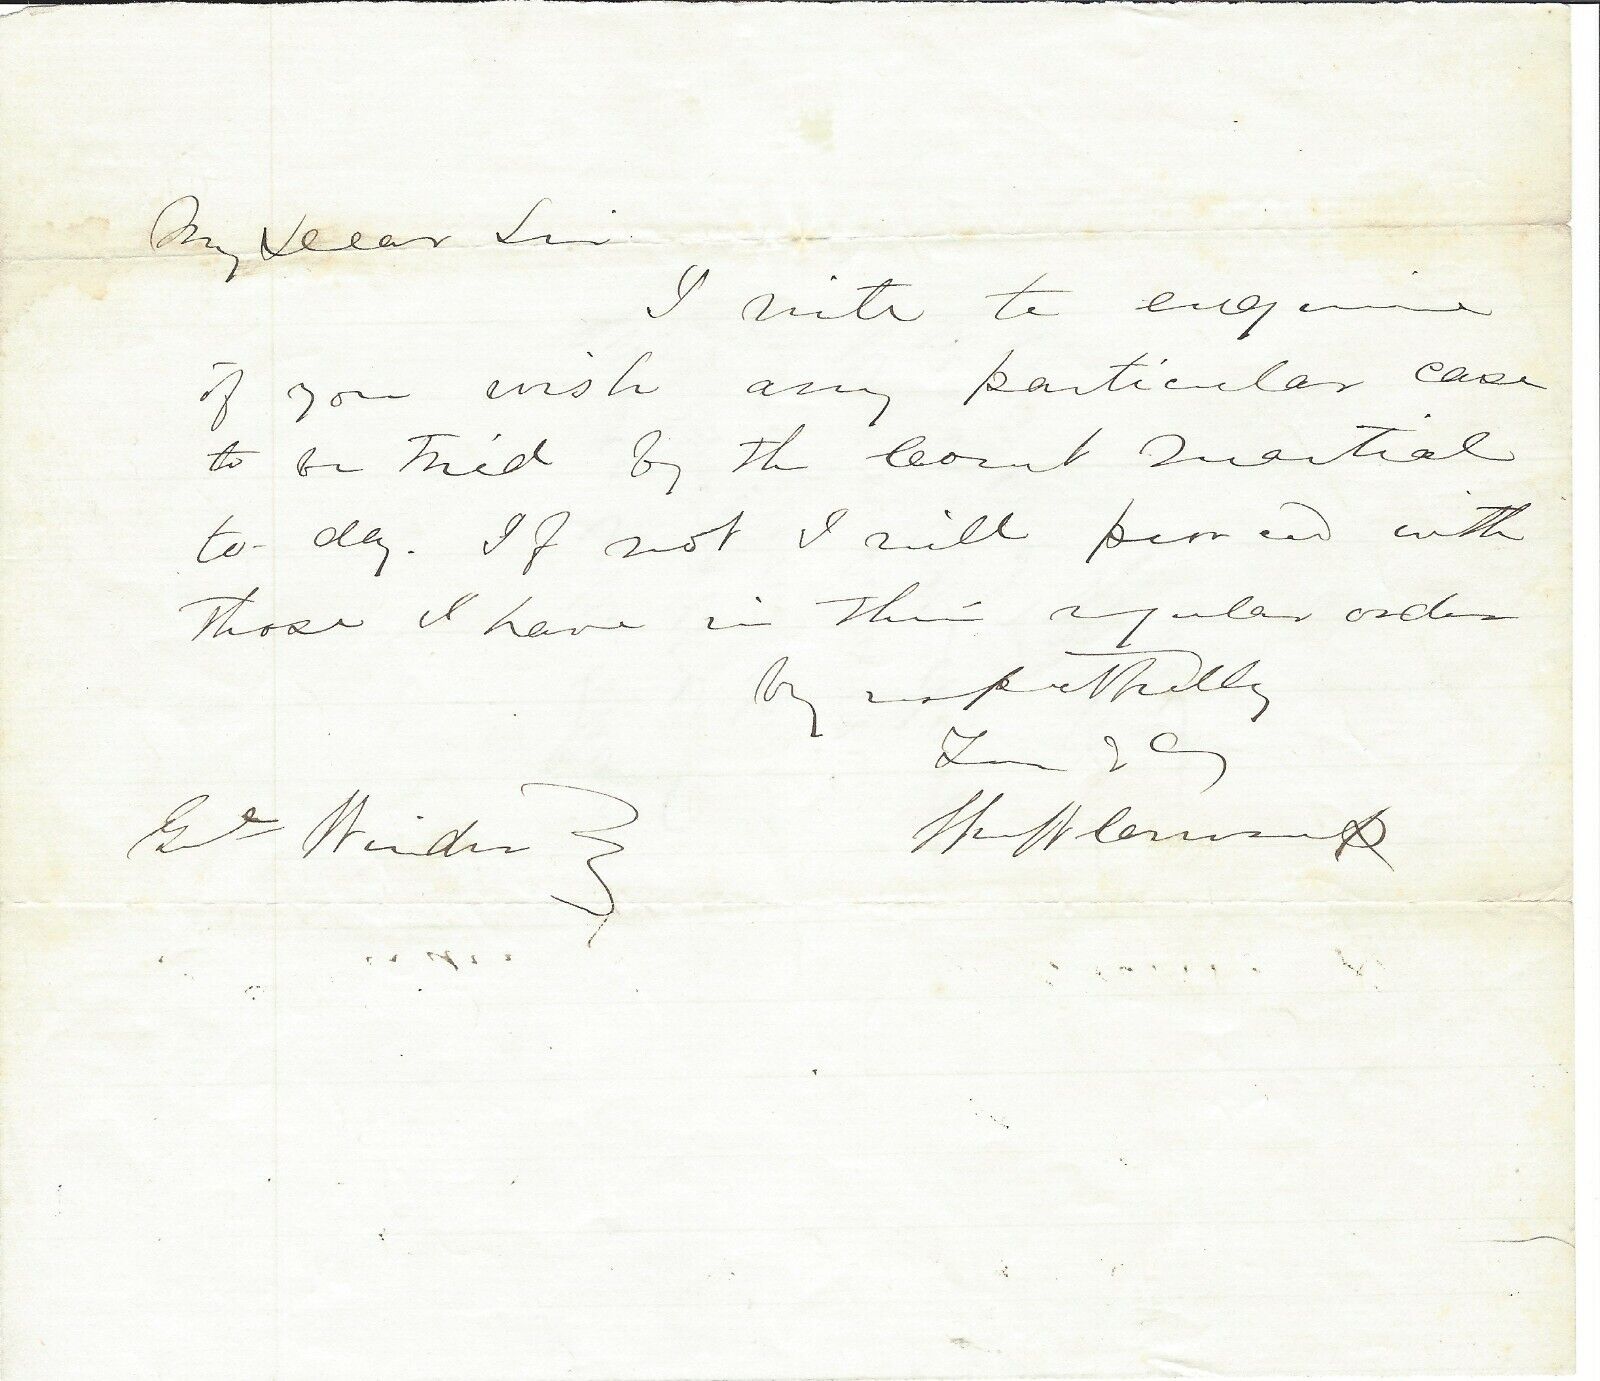 My Dear Sir
I write to enquire
if you wish any particular case
to be tried by the Court Martial
to-day. If not I will proceed with
those I have in their regular order
Vy respectfully
Gnl Winder